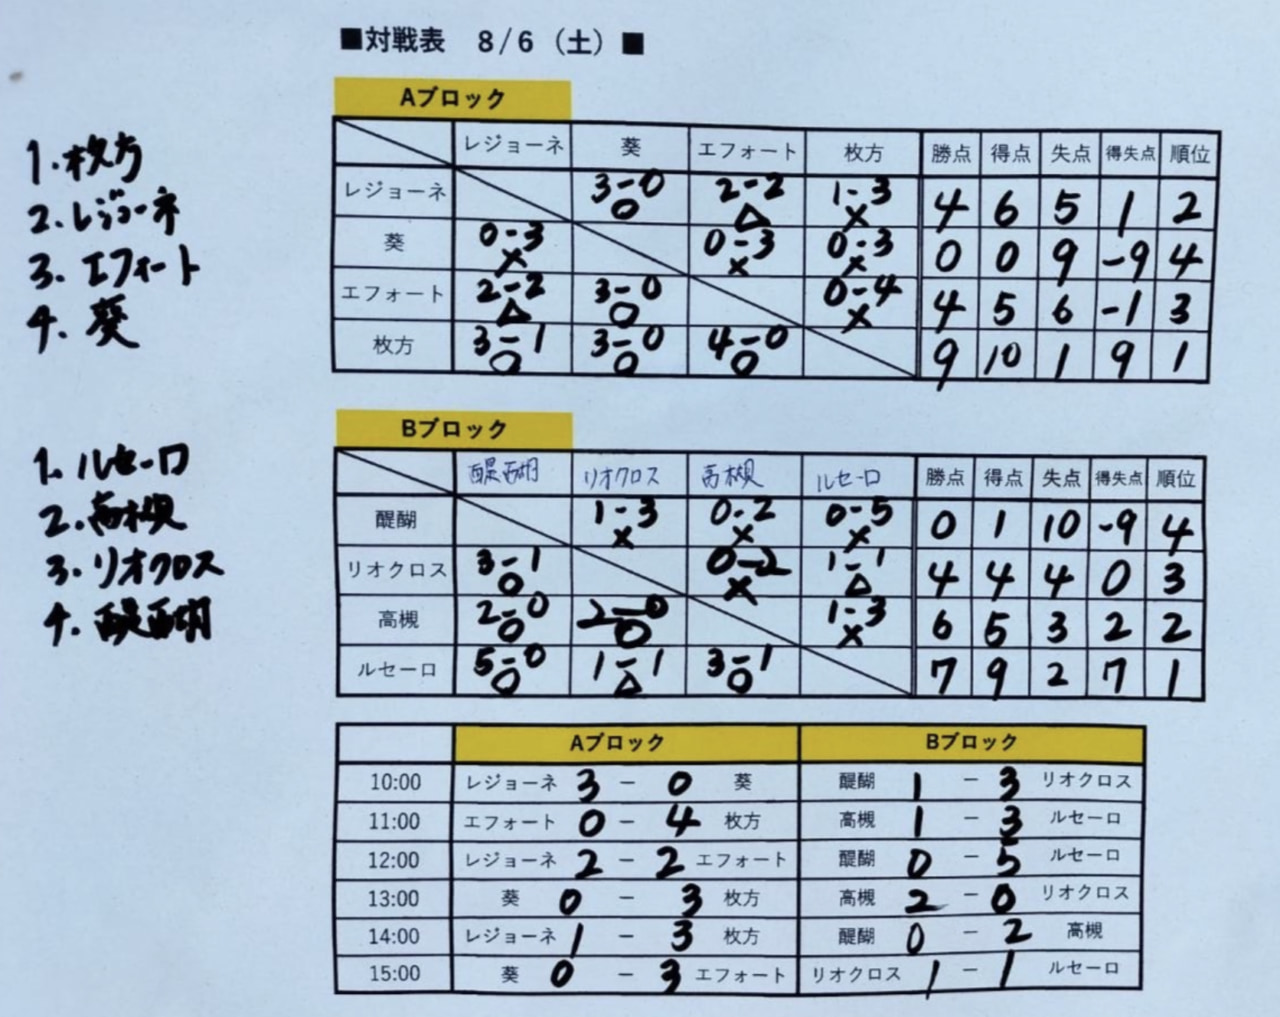 ■対戦表 8/6（土）■
Aブロック
レジョーネ 葵 エフォート 枚方 勝点 得点 失点 得失点 順位
レジョーネ 3-0 ○ 2-2 △ 1-3 × 4 6 5 1 2
葵 0-3 × 0-3 × 0-3 × 0 0 9 -9 4
エフォート 2-2 △ 3-0 ○ 0-4 × 4 5 6 -1 3
枚方 3-1 ○ 3-0 ○ 4-0 ○ 9 10 1 9 1
1.枚方
2.レジョーネ
3.エフォート
4.葵
Bブロック
醍醐 リオクロス 高槻 ルセーロ 勝点 得点 失点 得失点 順位
醍醐 1-3 × 0-2 × 0-5 × 0 1 10 -9 4
リオクロス 3-1 ○ 0-2 × 1-1 △ 4 4 4 0 3
高槻 2-0 ○ 2-0 ○ 1-3 × 6 5 3 2 2
ルセーロ 5-0 ○ 1-1 △ 3-1 ○ 7 9 2 7 1
1.ルセーロ
2.高槻
3.リオクロス
4.醍醐
Aブロック Bブロック
10:00 レジョーネ 3 - 0 葵 醍醐 1 - 3 リオクロス
11:00 エフォート 0 - 4 枚方 高槻 1 - 3 ルセーロ
12:00 レジョーネ 2 - 2 エフォート 醍醐 0 - 5 ルセーロ
13:00 葵 0 - 3 枚方 高槻 2 - 0 リオクロス
14:00 レジョーネ 1 - 3 枚方 醍醐 0 - 2 高槻
15:00 葵 0 - 3 エフォート リオクロス 1 - 1 ルセーロ